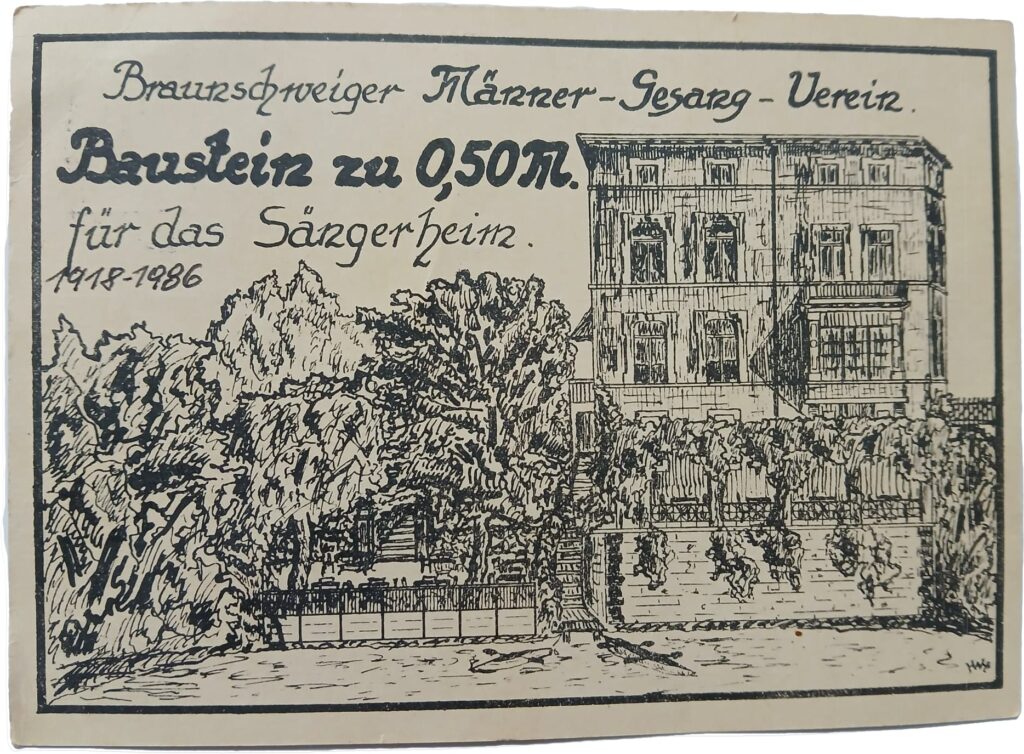 Braunschweiger Männer-Gesang-Verein.
Baustein zu 0,50 M.
für das Sängerheim.
1918-1986